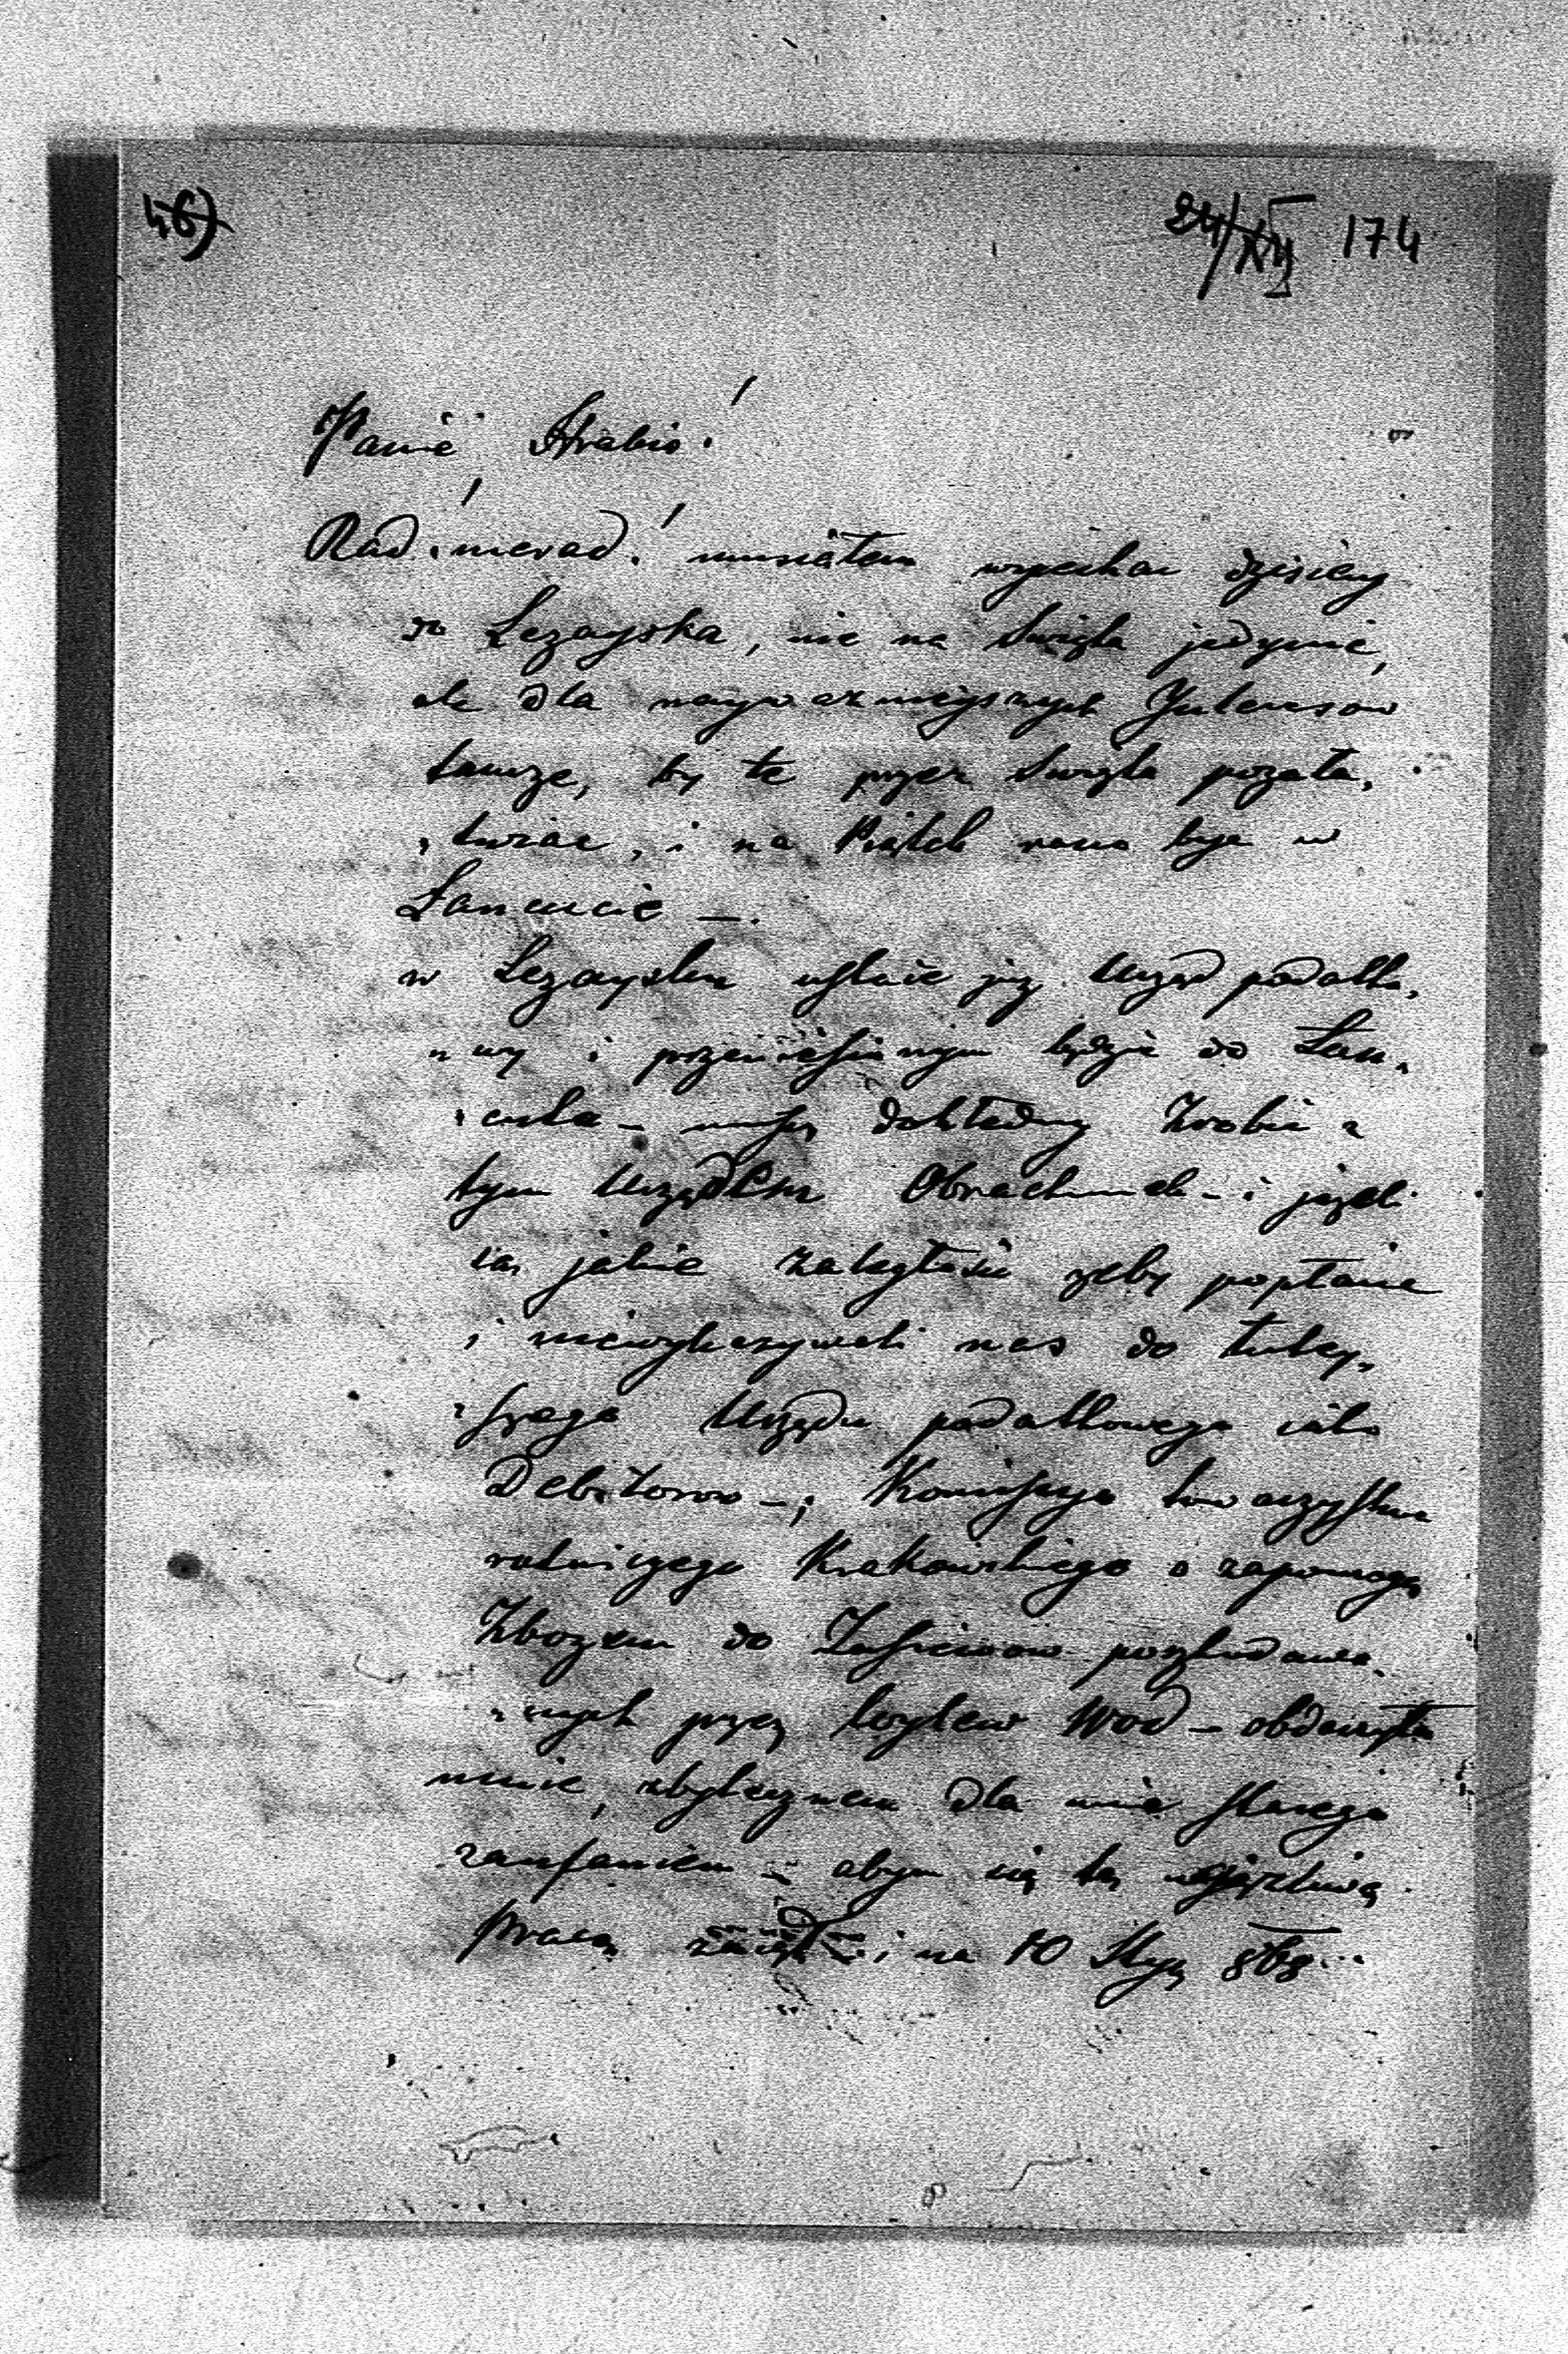 46)
24/XII 174
Panie Hrabio!
Rad! nierad! musiałem wyjechac dzisiay
do Lezayska, nie na Swięta jedynie,
ale dla nayważnieyszych Interesow
tamże, by te przez Swięta pozała,
,twiac, i na Piątek rano byc w
Łancucie —.
w Lezaysku ustaie już Urząd podatko,
,wy i przeniesionym będzie do Łan,
,cuta – muszę dokładny Zrobic z
tym Urzędem Obrachunek – i jeżeli
są jakie zaległości żeby popłacic
i niewykazywali nas do tutey,
,szego Urzędu podatkowego iako
Debitorow –; Komissya towarzystwa
rolniczego Krakowskiego o zapomogę
Zbożem do Zasiewow poszkodowa,
,nych przez wylew Wod – obdarzyła
mnie, zbytecznem dla mnie starego
zaufaniem – abym się tą
pracą i na 10 Stycz 868...